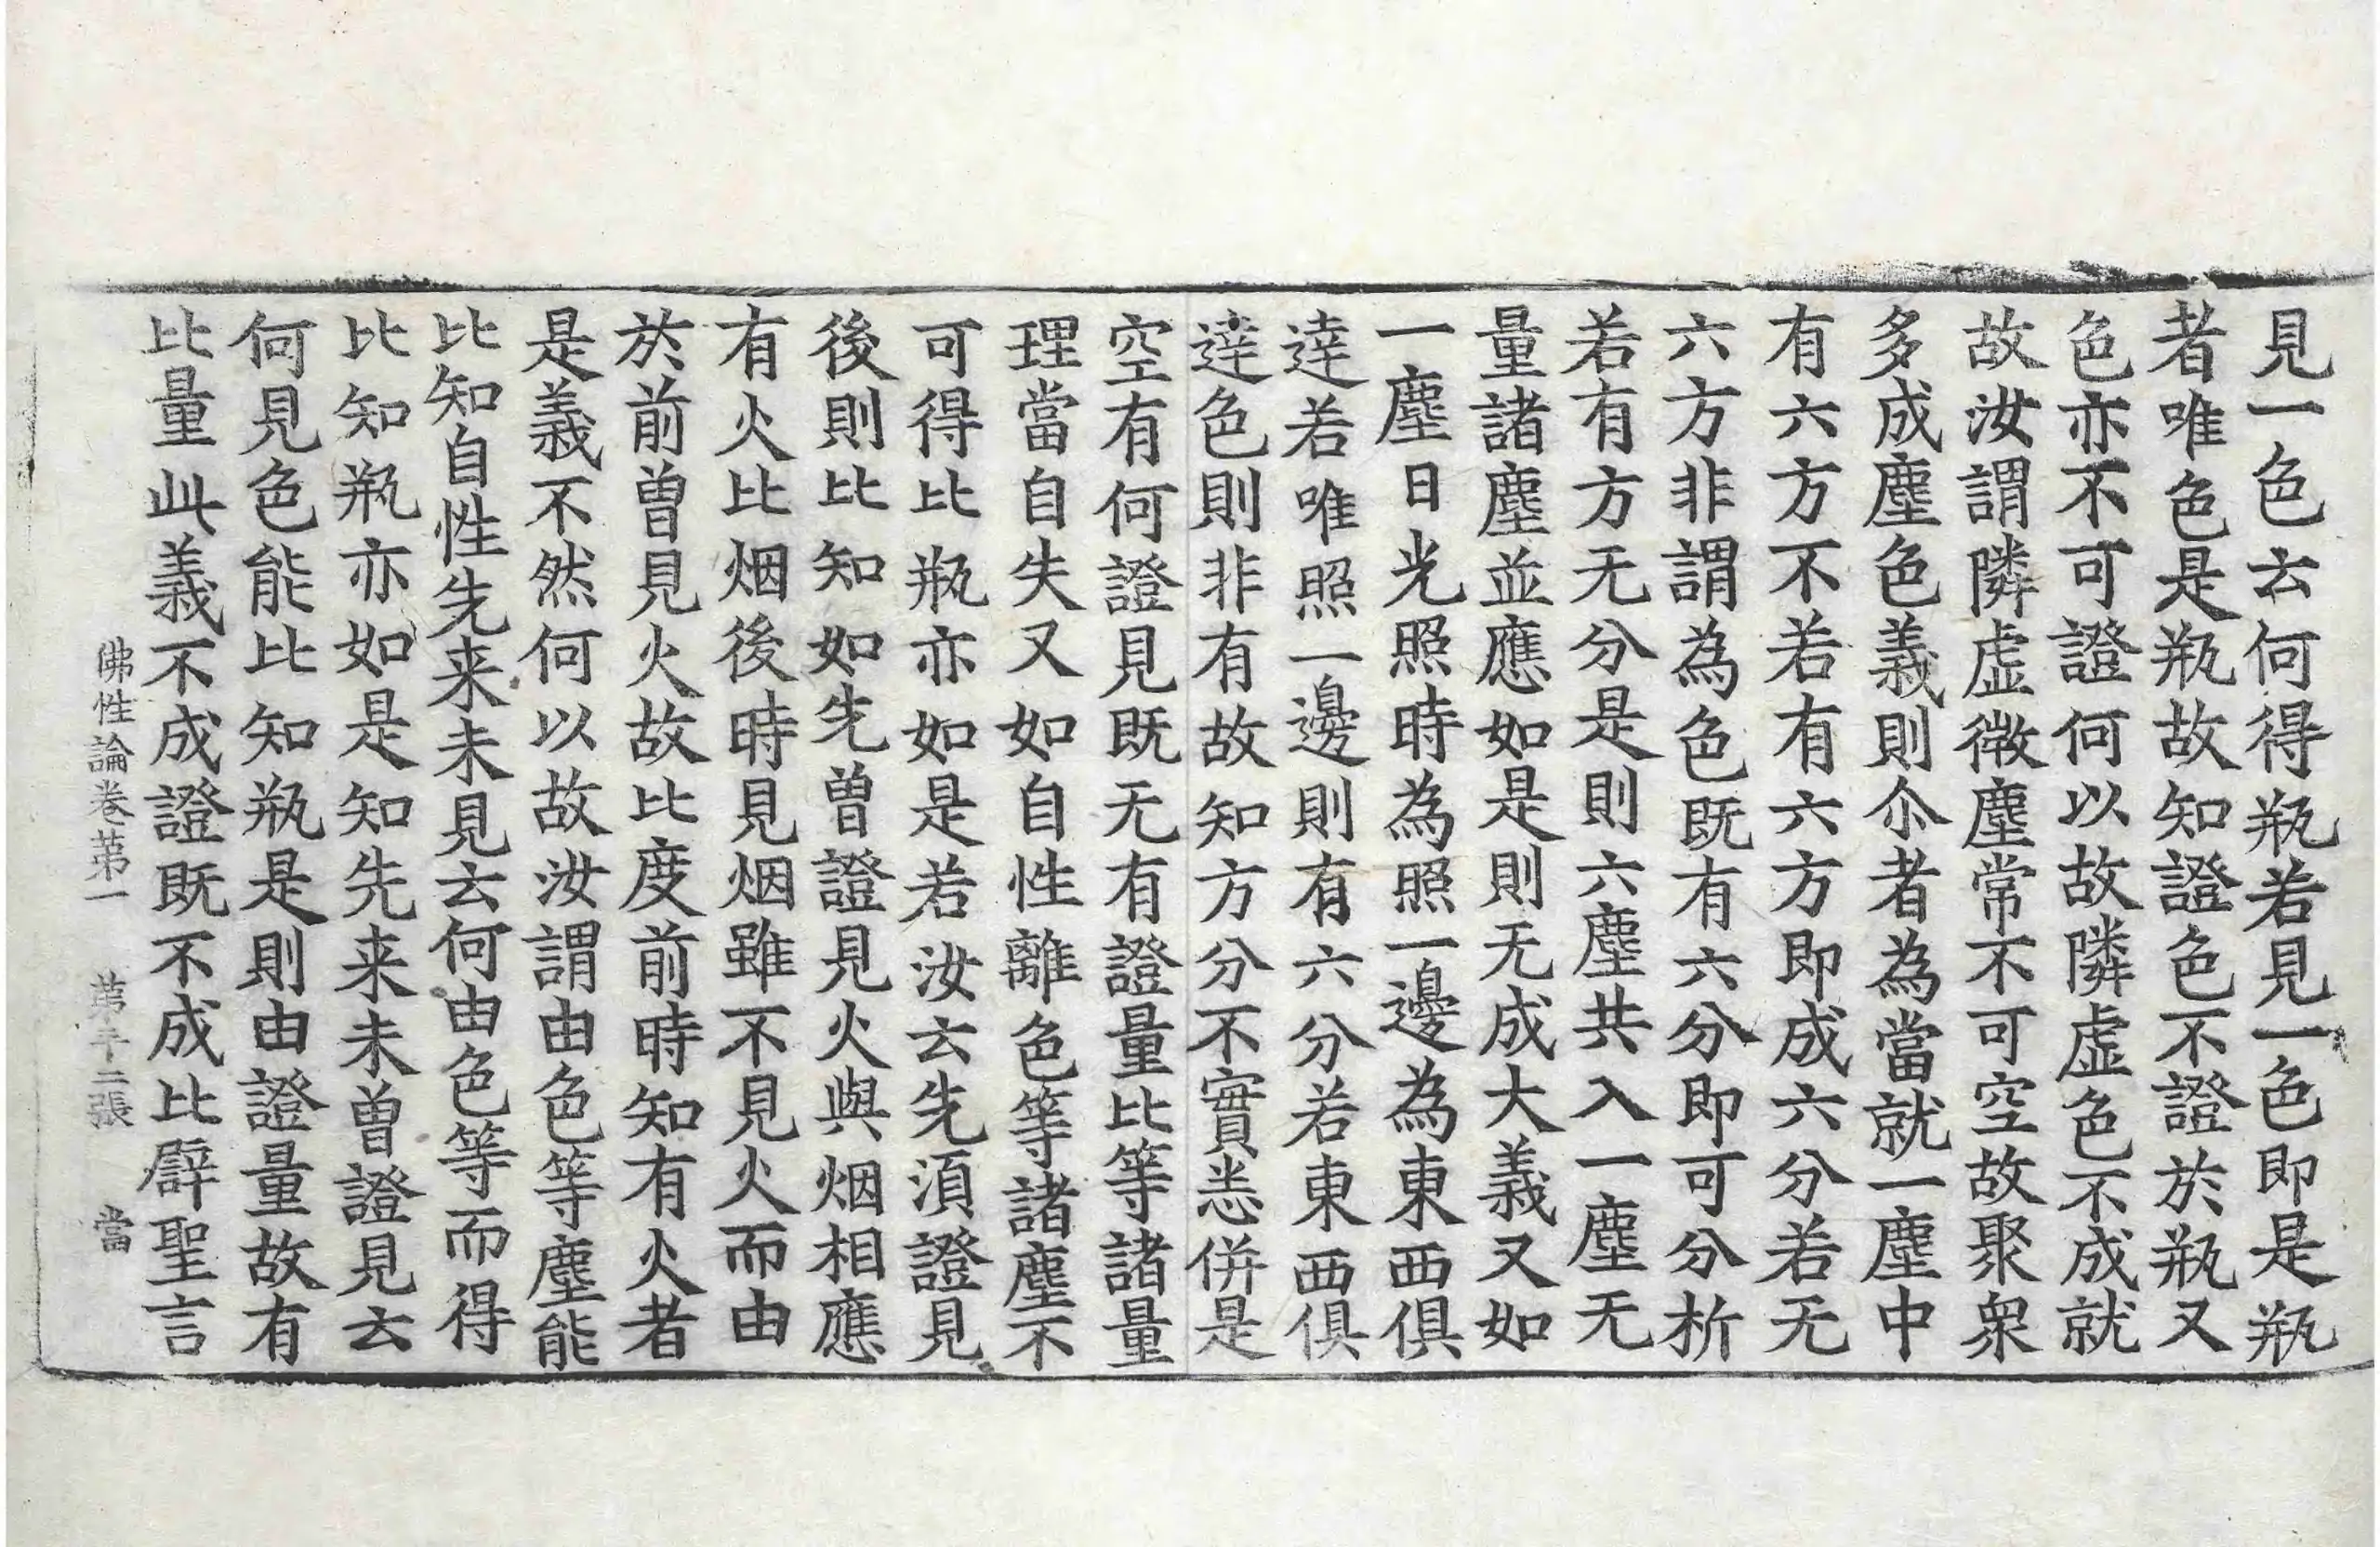 見一色云何得瓶若見一色即是瓶
者唯色是瓶故知證色不證於瓶又
色亦不可證何以故隣虛色不成就
故汝謂隣虛微塵常不可空故聚衆
多成塵色義則尒者為當就一塵中
有六方不若有六方即成六分若无
六方非謂為色既有六分即可分析
若有方无分是則六塵共入一塵无
量諸塵並應如是則无成大義又如
一塵日光照時為照一邊為東西俱
達若唯照一邊則有六分若東西俱
達色則非有故知方分不實悉併是
空有何證見既无有證量比等諸量
理當自失又如自性離色等諸塵不
可得比瓶亦如是若汝云先須證見
後則比知如先曾證見火與烟相應
有火比烟後時見烟雖不見火而由
於前曾見火故比度前時知有火者
是義不然何以故汝謂由色等塵能
比知自性先来未見云何由色等而得
比知瓶亦如是知先来未曾證見云
何見色能比知瓶是則由證量故有
比量此義不成證既不成比譬聖言
佛性論卷苐一　苐十二張　當